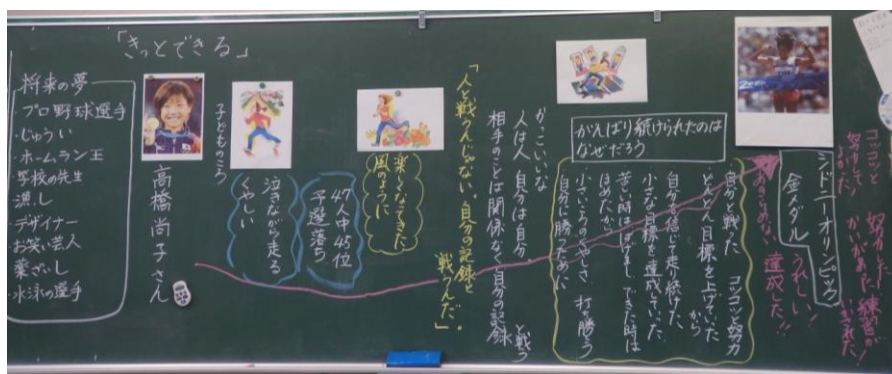 「きっとできる」
将来の夢
・プロ野球選手
・じゅうい
・ホームラン王
・学校の先生
・漁し
・デザイナー
・お笑い芸人
・薬ざいし
・水泳の選手
高橋尚子さん
子どものころ
泣きながら走る
くやしい
47人中45位
予選落ち
楽しくなってきた
風のように
「人と戦うんじゃない。自分の記録と
戦うんだ。」
かっこいいな
人は人 自分は自分
相手のことは関係なく自分の記録
と戦う
がんばり続けられたのは
なぜだろう
自分と戦った コツコツと努力
どんどん目標を上げていった
から
自分を信じて走り続けた
小さな目標を達成していった
苦しい時ははげまし できた時は
ほめたから
小さいころのくやしさ 打ち勝とう
自分に勝つために
シドニーオリンピック
金メダル
うれしい!
あきらめない 達成した!!
コツコツと
努力して
よかった
努力した
かいがあった
練習が
いかされた!